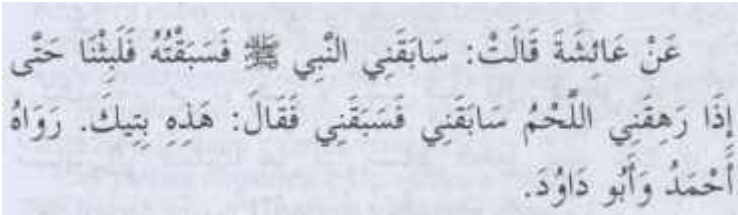 عَنْ عَائِشَةَ قَالَتْ: سَابَقَنِي النَّبِي ﷺ فَسَبَقْتُهُ فَلَبِثْنَا حَتَّى
إِذَا رَهِقَنِي اللَّحْمُ سَابَقَنِي فَسَبَقَنِي فَقَالَ: هَذِهِ بِتِيكَ. رَوَاهُ
أَحْمَدُ وَأَبُو دَاوُدَ.